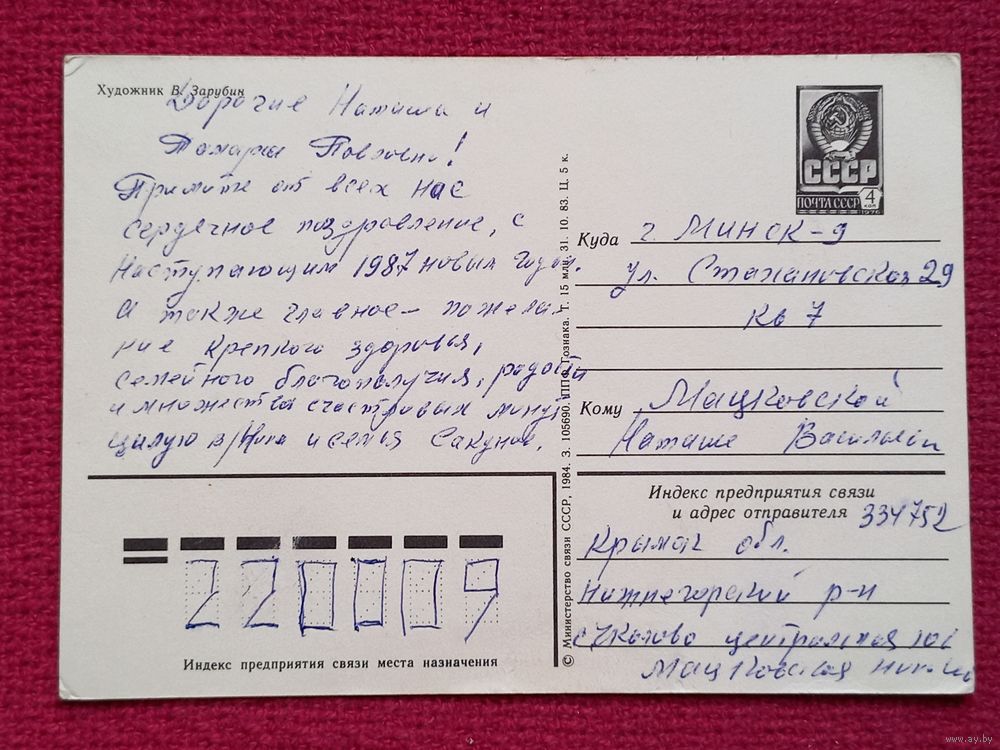 Художник В. Зарубин
Дорогие Наташа и
Тамара Павловна!
Примите от всех нас
сердечное поздравление, с
наступающим 1987 новым годом.
а также главное – пожела-
ние крепкого здоровья,
семейного благополучия, радости
и множества счастливых минут
целую в/ Нина и семья Сакунов.
СССР
ПОЧТА СССР
4 коп
1976
Куда г. Минск-9
ул. Стахановская 29
кв 7
Кому Мацковской
Наташе Васильевн
Индекс предприятия связи
и адрес отправителя 334752
Крымск обл.
Нижнегорский р-н
с Чкалово центральная
Мацковская
220009
Индекс предприятия связи места назначения
© Министерство связи СССР, 1984. З. 105690. ППФ Гознака. Т. 15 млн. 31. 10. 83. Ц. 5 к.
www.ay.by